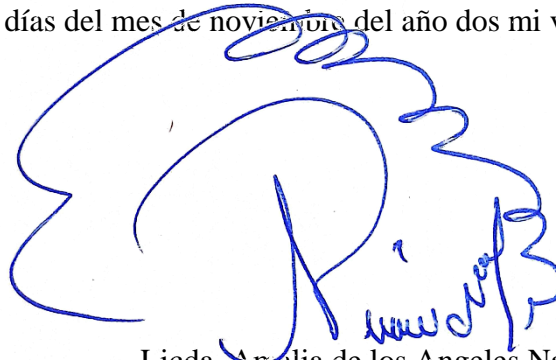 días del mes de noviembre del año dos mi v
Licda. Amalia de los Angeles Na